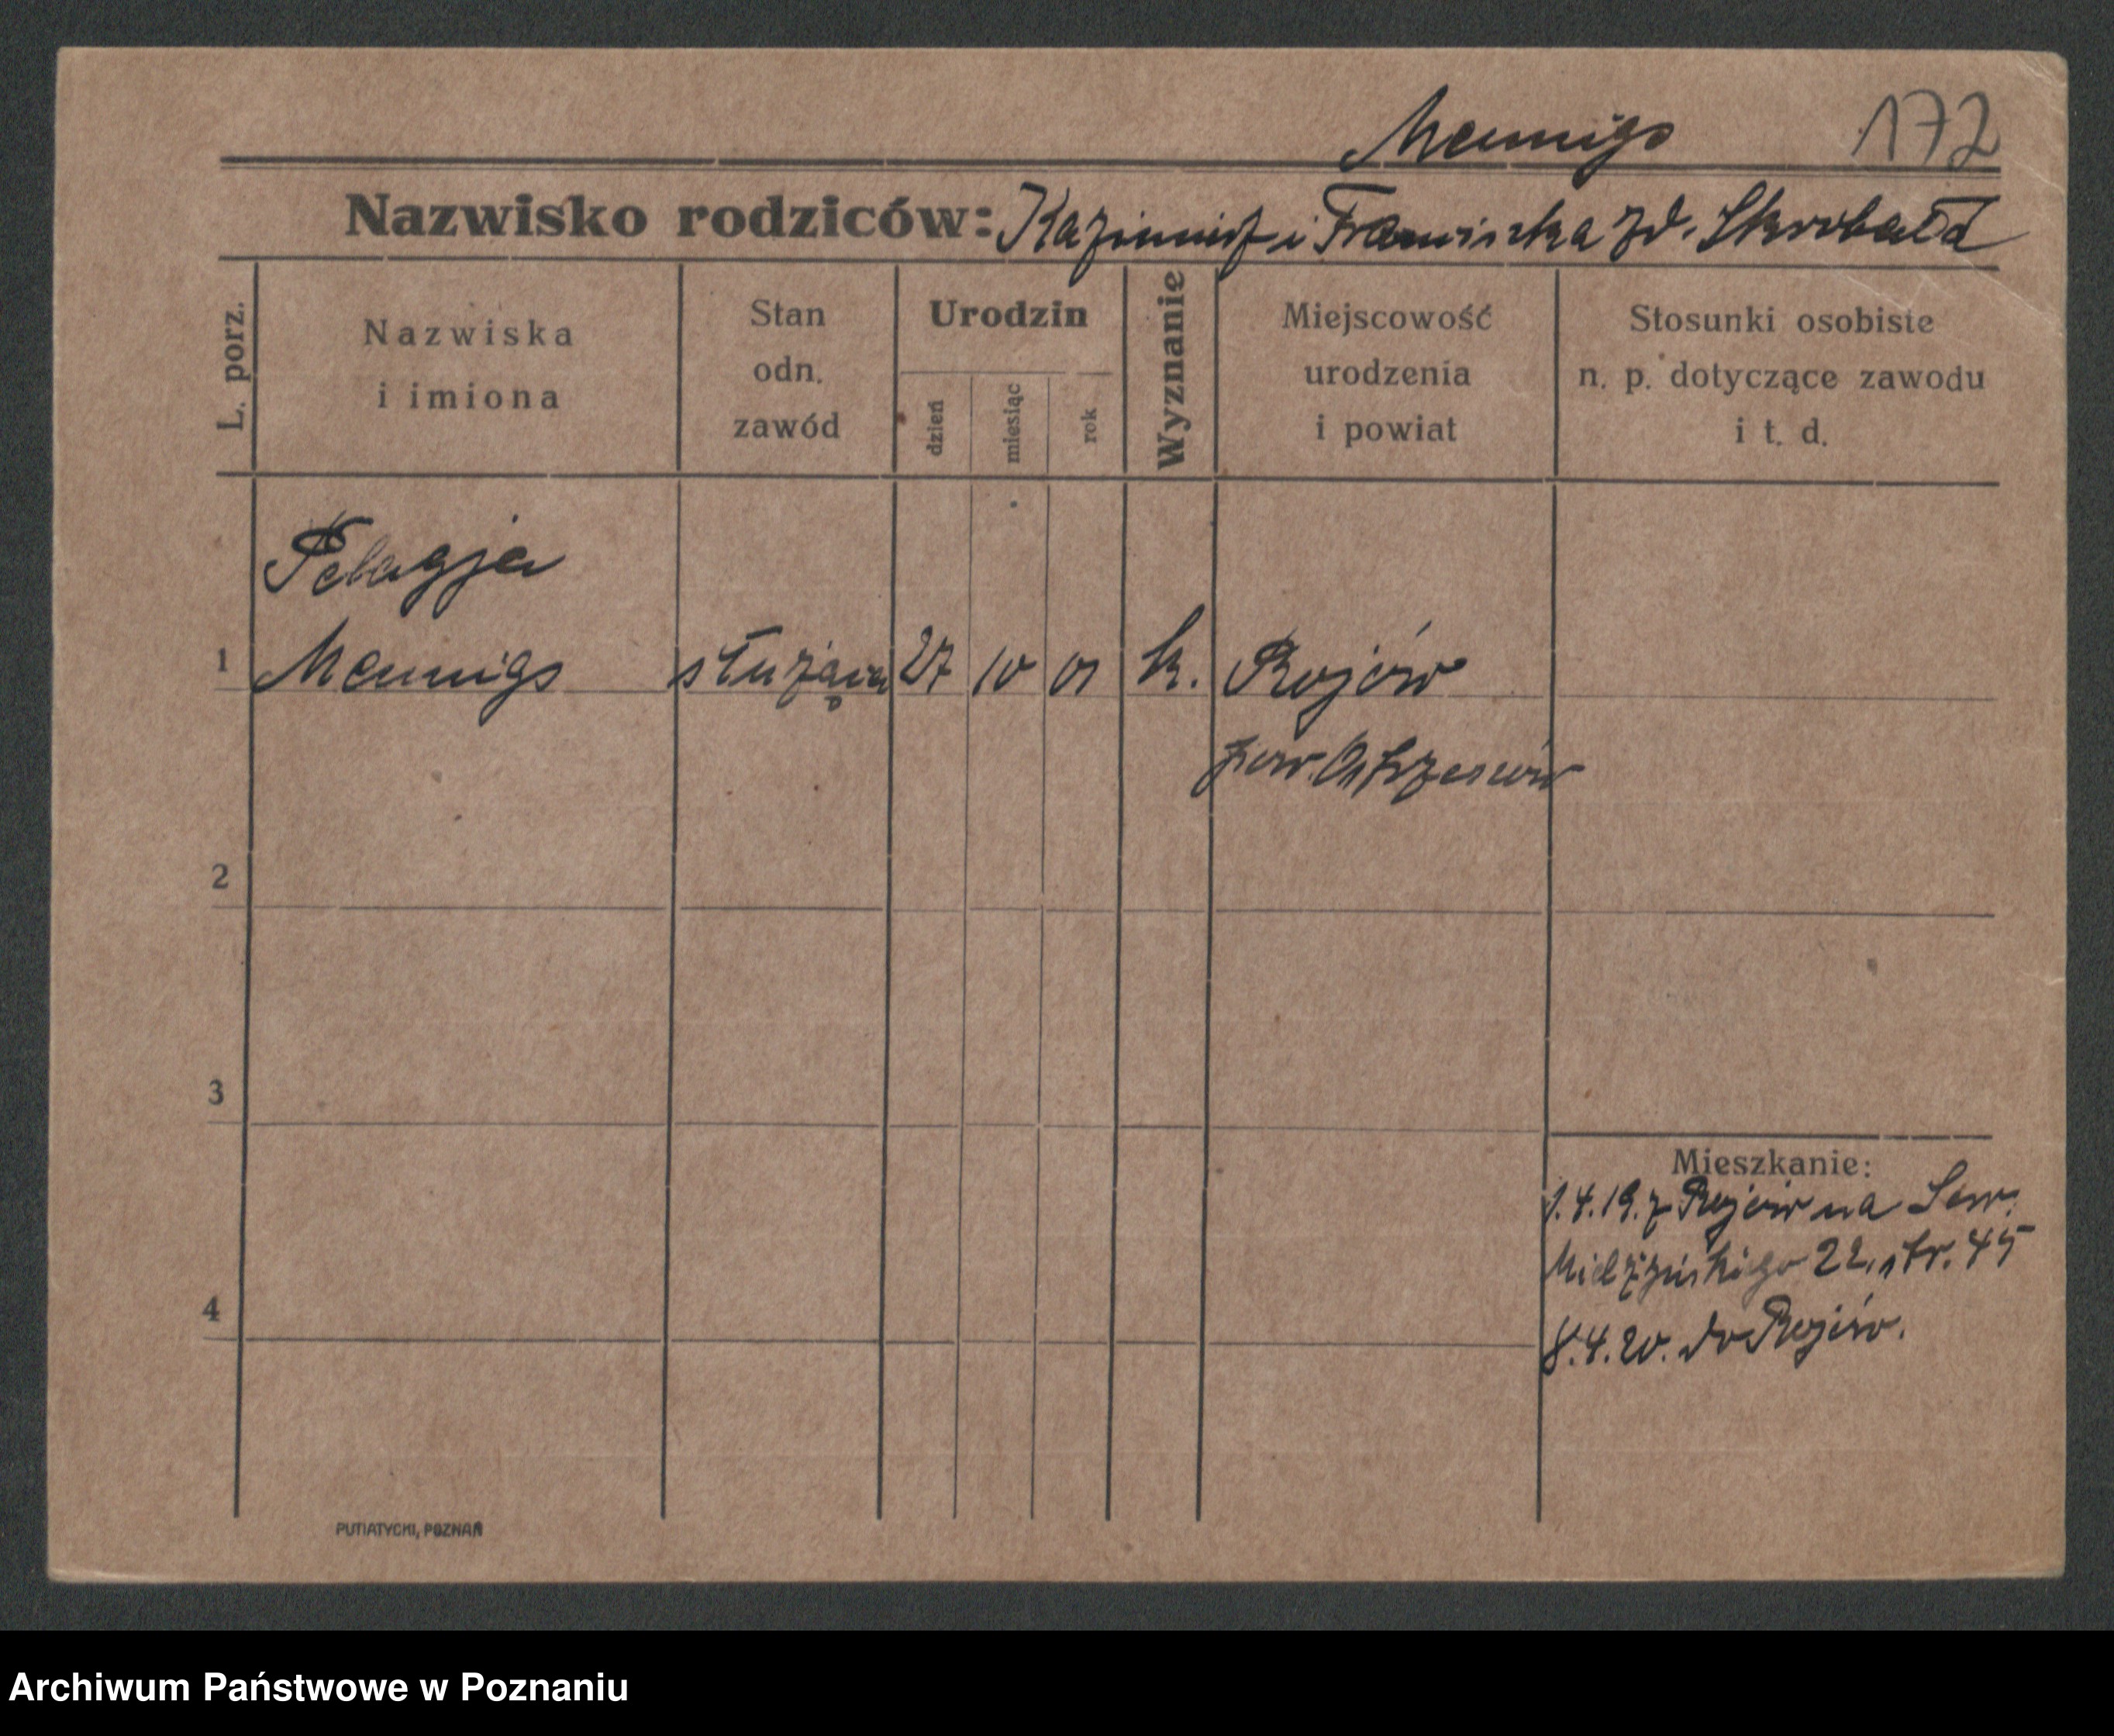 Mennigs 172
Nazwisko rodziców: Kazimierz i Franciszka zd. Skrobała
L. porz.
Nazwiska
i imiona
Stan
odn.
zawód
Urodzin
dzień
miesiąc
rok
Wyznanie
Miejscowość
urodzenia
i powiat
Stosunki osobiste
n. p. dotyczące zawodu
i t. d.
Pelagja
1 Mennigs służąca 27 10 01 k. Rojów
pow. Ostrzeszów
2
3
Mieszkanie:
1.4.19. z Rojów na Sew.
Mielżyńskiego 22, str. 45
4
8.4.20. do Rojów.
PUTIATYCKI, POZNAŃ
Archiwum Państwowe w Poznaniu